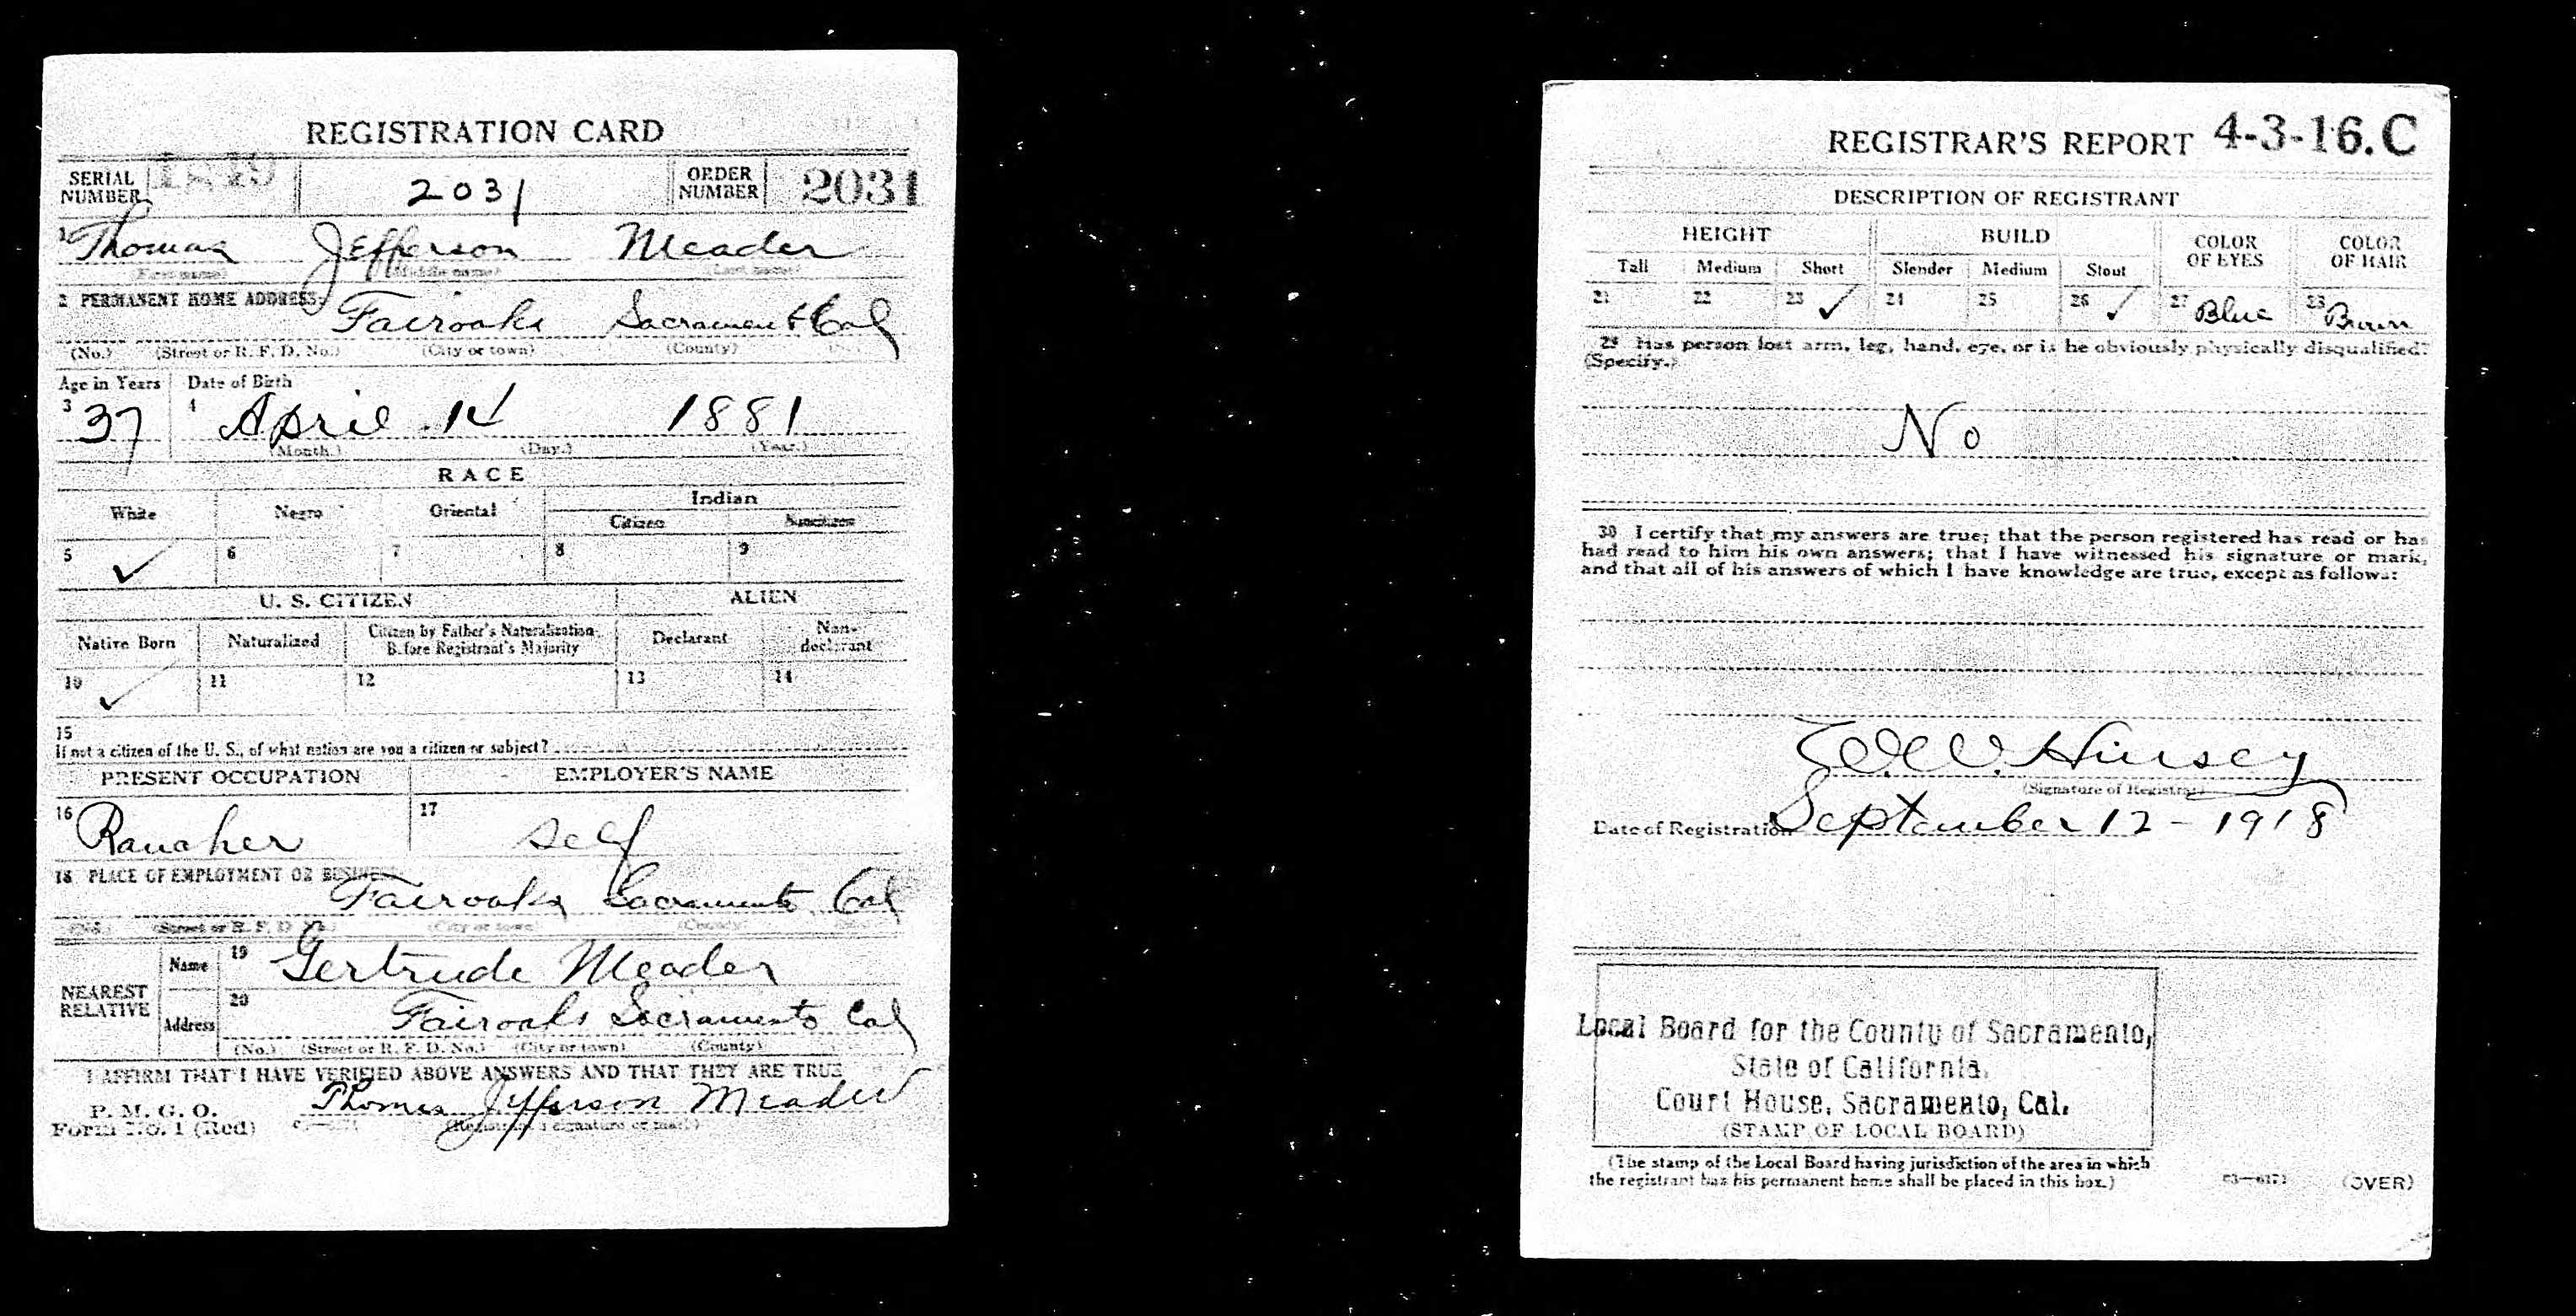 REGISTRATION CARD
SERIAL NUMBER 2031 ORDER NUMBER 2031
1 Thomas Jefferson Meader
(First name) (Middle name) (Last name)
2 PERMANENT HOME ADDRESS:
Fairoaks Sacramento Cal
(No.) (Street or R. F. D. No.) (City or town) (County)
Age in Years Date of Birth
3 37 4 April 14 1881
(Month.) (Day.) (Year.)
RACE
White Negro Oriental Indian
Citizen Noncitizen
5 ✓ 6 7 8 9
U. S. CITIZEN ALIEN
Native Born Naturalized Citizen by Father's Naturalization Before Registrant's Majority Declarant Non-declarant
10 ✓ 11 12 13 14
15
If not a citizen of the U. S., of what nation are you a citizen or subject?
PRESENT OCCUPATION EMPLOYER'S NAME
16 Rancher 17 self
18 PLACE OF EMPLOYMENT OR BUSINESS:
Fairoaks Sacramento Cal
(No.) (Street or R. F. D. No.) (City or town) (County)
NEAREST RELATIVE
Name 19 Gertrude Meader
Address 20 Fairoaks Sacramento Cal
(No.) (Street or R. F. D. No.) (City or town) (County)
I AFFIRM THAT I HAVE VERIFIED ABOVE ANSWERS AND THAT THEY ARE TRUE
P. M. G. O.
Form No. 1 (Red)
Thomas Jefferson Meader
(Registrant's signature or mark)
REGISTRAR'S REPORT 4-3-16.C
DESCRIPTION OF REGISTRANT
HEIGHT BUILD COLOR OF EYES COLOR OF HAIR
Tall Medium Short Slender Medium Stout
21 22 23 ✓ 24 25 26 ✓ 27 Blue 28 Brown
29 Has person lost arm, leg, hand, eye, or is he obviously physically disqualified?
(Specify.)
No
30 I certify that my answers are true; that the person registered has read or has
had read to him his own answers; that I have witnessed his signature or mark,
and that all of his answers of which I have knowledge are true, except as follows:
Hinsey
(Signature of Registrar)
Date of Registration September 12 - 1918
Local Board for the County of Sacramento,
State of California,
Court House, Sacramento, Cal.
(STAMP OF LOCAL BOARD)
(The stamp of the Local Board having jurisdiction of the area in which
the registrant has his permanent home shall be placed in this box.)
(OVER)